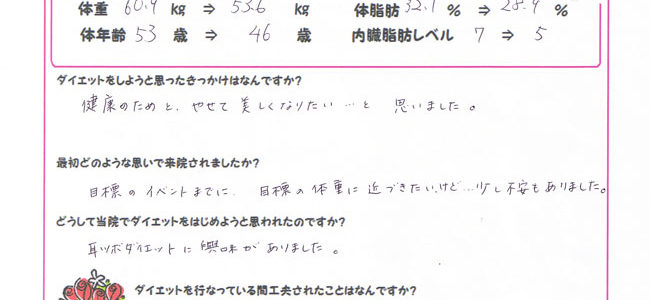 体重 60.9 kg ⇒ 53.6 kg 体脂肪 32.1 % ⇒ 28.9 %
体年齢 53 歳 ⇒ 46 歳 内臓脂肪レベル 7 ⇒ 5
ダイエットをしようと思ったきっかけはなんですか?
健康のためと、やせて美しくなりたい…と 思いました。
最初どのような思いで来院されましたか?
目標のイベントまでに、目標の体重に近づきたいけど…少し不安もありました。
どうして当院でダイエットをはじめようと思われたのですか?
耳ツボダイエットに興味がありました。
ダイエットを行なっている間工夫されたことはなんですか?